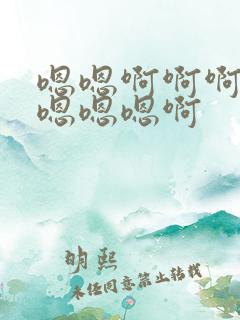 嗯嗯啊啊啊
嗯嗯嗯啊
明熙
未经同意禁止转载